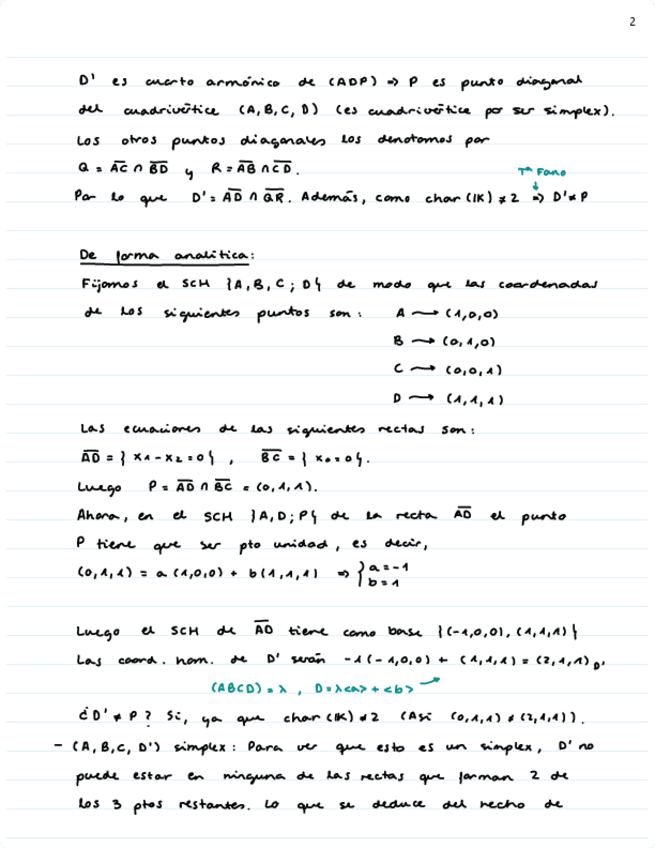 2
D' es cuarto armónico de (ADP) => P es punto diagonal
del cuadrivértice (A, B, C, D) (es cuadrivértice por ser simplex).
Los otros puntos diagonales los denotamos por
Q = A̅C̅ ∩ B̅D̅ y R = A̅B̅ ∩ C̅D̅.
Tª Fano
↓
Por lo que D' = A̅D̅ ∩ Q̅R̅. Además, como char(IK) ≠ 2 => D' ≠ P
De forma analítica:
Fijamos el SCH {A, B, C; D} de modo que las coordenadas
de los siguientes puntos son: A → (1,0,0)
B → (0,1,0)
C → (0,0,1)
D → (1,1,1)
Las ecuaciones de las siguientes rectas son:
A̅D̅ = {x₁ - x₂ = 0}, B̅C̅ = {x₀ = 0}.
Luego P = A̅D̅ ∩ B̅C̅ = (0,1,1).
Ahora, en el SCH {A, D; P} de la recta A̅D̅ el punto
P tiene que ser pto unidad, es decir,
(0,1,1) = a(1,0,0) + b(1,1,1) => { a = -1
b = 1
Luego el SCH de A̅D̅ tiene como base {(-1,0,0), (1,1,1)}
Las coord. hom. de D' serán -1(-1,0,0) + (1,1,1) = (2,1,1)D'.
(ABCD) = λ, D = λ<a> + <b>
¿D' ≠ P? Sí, ya que char(IK) ≠ 2 (Así (0,1,1) ≠ (2,1,1)).
- (A, B, C, D') simplex: Para ver que esto es un simplex, D' no
puede estar en ninguna de las rectas que forman 2 de
los 3 ptos restantes. Lo que se deduce del hecho de